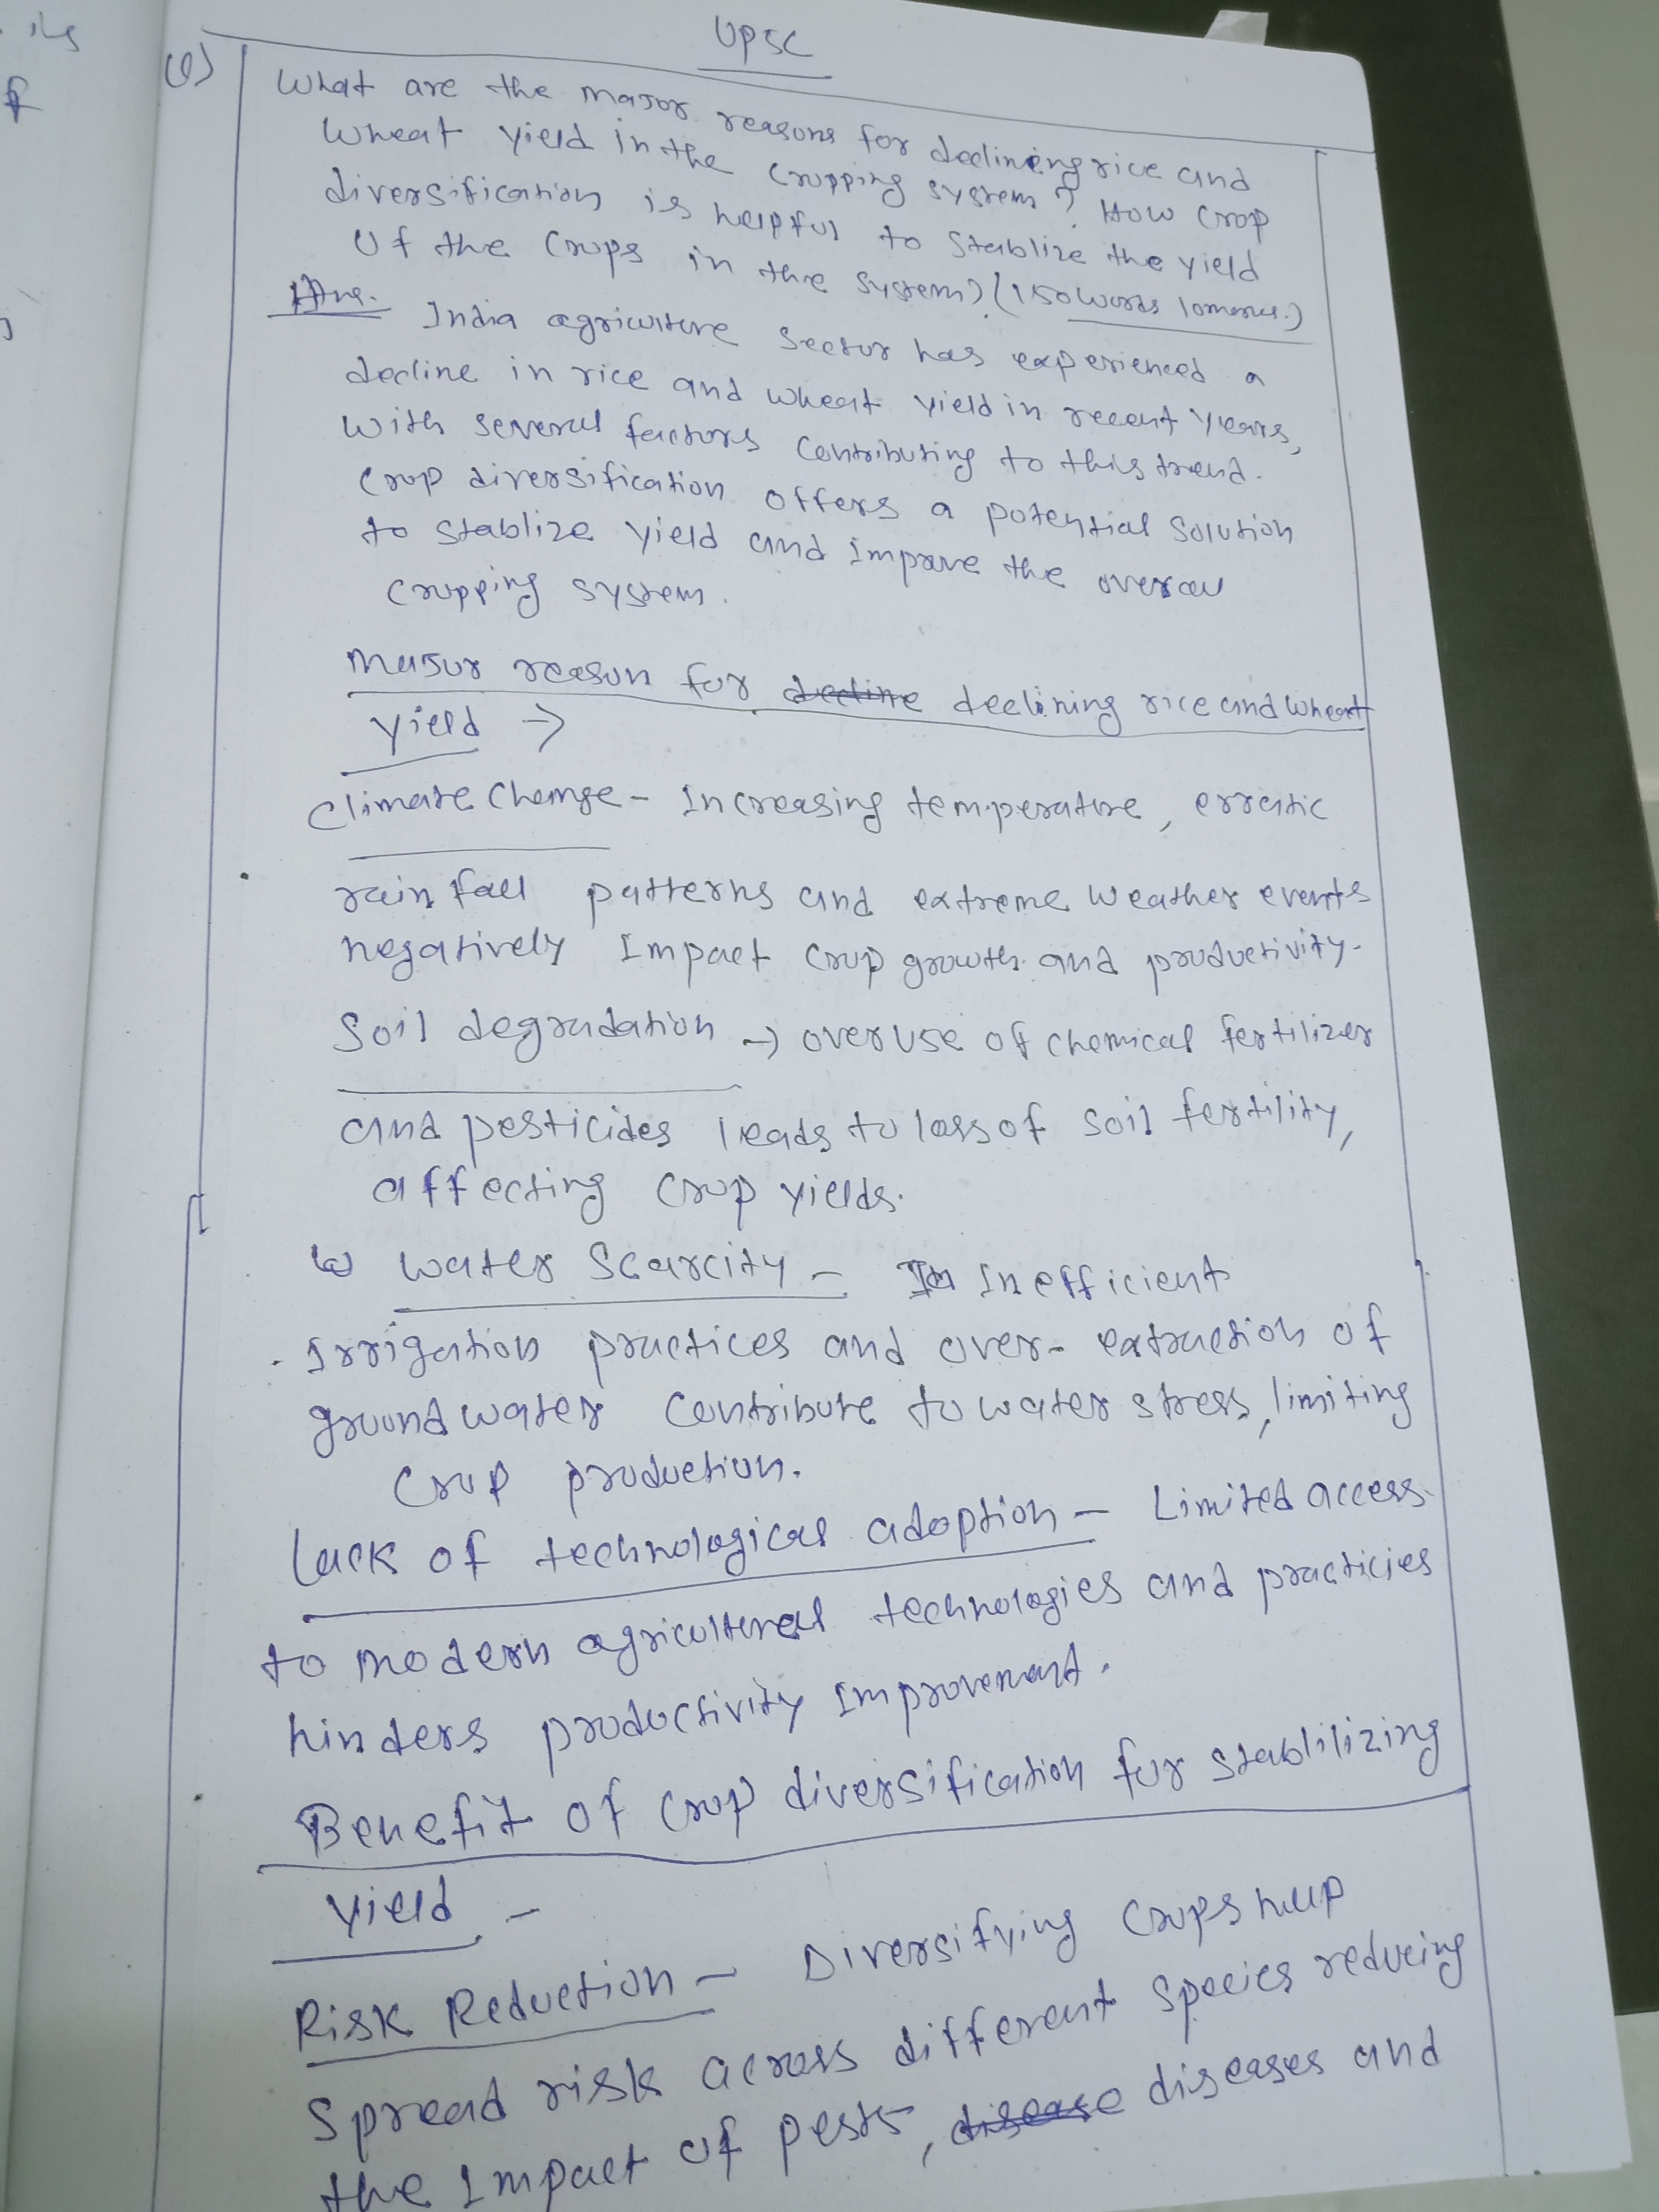 UPSC
(1) What are the major reasons for declining rice and
wheat yield in the cropping system? How crop
diversification is helpful to stablize the yield
of the crops in the system? (150 words 10marks.)
Ans. India agriculture sector has experienced a
decline in rice and wheat yield in recent years,
with several factors contributing to this trend.
crop diversification offers a potential solution
to stablize yield and improve the overall
cropping system.
major reason for decline declining rice and wheat
yield →
climate change - Increasing temperature, erratic
rainfall patterns and extreme weather events
negatively impact crop growth and productivity.
Soil degradation → overuse of chemical fertilizer
and pesticides leads to loss of soil fertility,
affecting crop yields.
water scarcity - In Inefficient
Irrigation practices and over-extraction of
groundwater contribute to water stress, limiting
crop production.
Lack of technological adoption - Limited access
to modern agricultural technologies and practicies
hinders productivity improvement.
Benefit of crop diversification for stablilizing
yield -
Risk Reduction - Diversifying crops help
spread risk across different species reducing
the impact of pests, disease diseases and
its
f